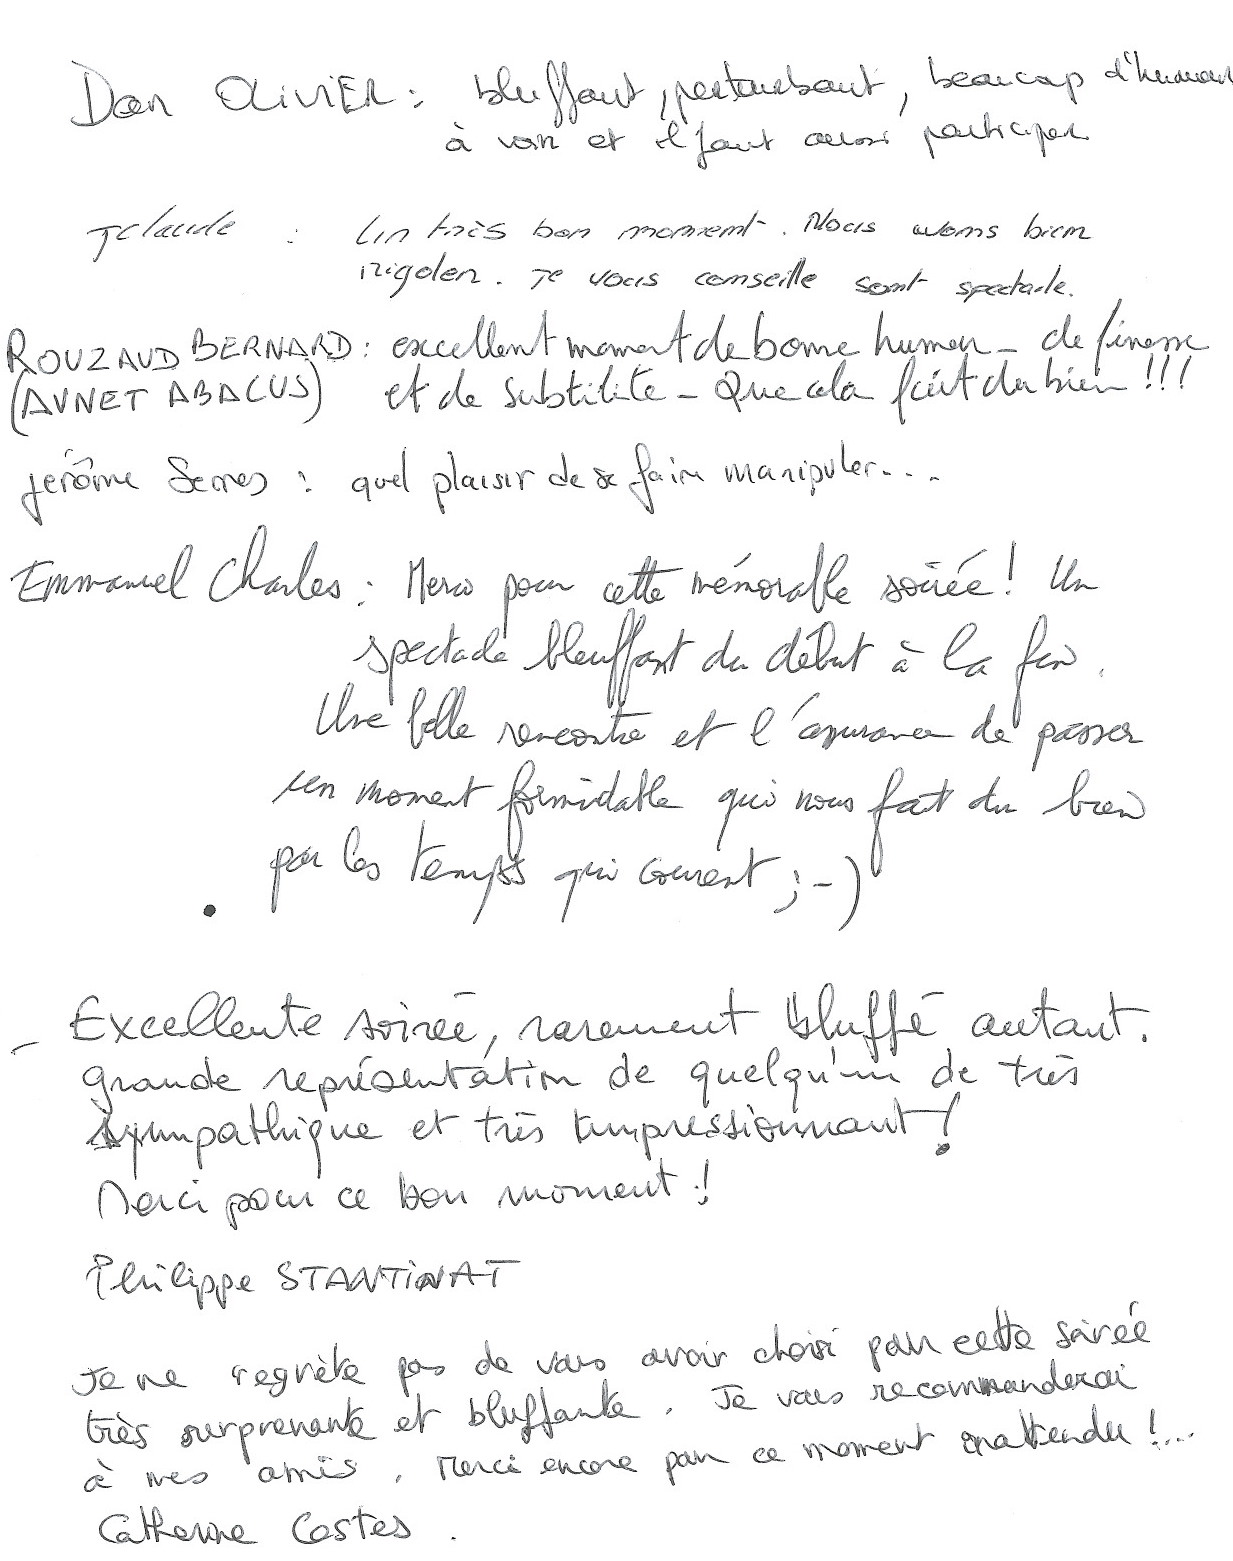 Dan OLIVIER : bluffant, perturbant, beaucoup d'humour
à voir et il faut aussi participer
JClaude : Un très bon moment. Nous avons bien
rigoler. Je vous conseille sont spectacle.
ROUZAUD BERNARD : excellent moment de bonne humeur - de finesse
(AVNET ABACUS) et de subtilité - Que cela fait du bien !!!
Jérôme Serres : quel plaisir de se faire manipuler...
Emmanuel Charles : Merci pour cette mémorable soirée ! Un
spectacle bleuffant du début à la fin.
Une belle rencontre et l'assurance de passer
un moment formidable qui nous fait du bien
par les temps qui courent ;-)
- Excellente soirée, rarement bluffé autant.
Grande représentation de quelqu'un de très
sympathique et très impressionnant !
Merci pour ce bon moment !
Philippe STANTINAT
Je ne regrète pas de vous avoir choisi pour cette soirée
très surprenante et bluffante. Je vous recommanderai
à mes amis. Merci encore pour ce moment inattendu !...
Catherine Costes.